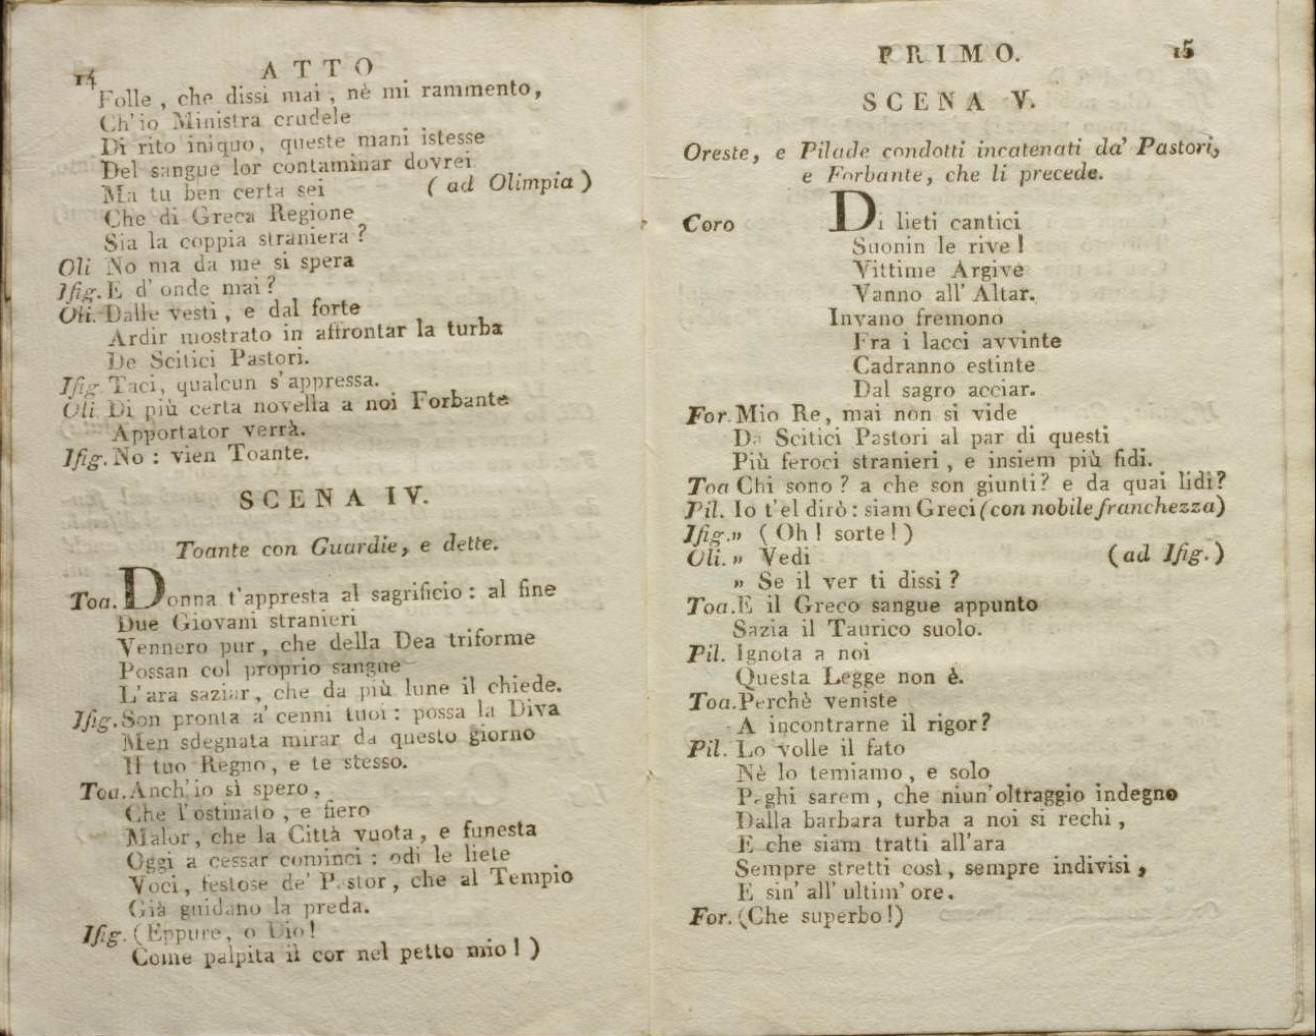 14 ATTO
Folle, che dissi mai, nè mi rammento,
Ch'io Ministra crudele
Di rito iniquo, queste mani istesse
Del sangue lor contaminar dovrei
Ma tu ben certa sei ( ad Olimpia )
Che di Greca Regione
Sia la coppia straniera?
Oli No ma da me si spera
Ifig. E d'onde mai?
Oli. Dalle vesti, e dal forte
Ardir mostrato in affrontar la turba
De Scitici Pastori.
Ifig Taci, qualcun s'appressa.
Oli Di più certa novella a noi Forbante
Apportator verrà.
Ifig. No: vien Toante.
SCENA IV.
Toante con Guardie, e dette.
Toa. Donna t'appresta al sagrificio: al fine
Due Giovani stranieri
Vennero pur, che della Dea triforme
Possan col proprio sangue
L'ara saziar, che da più lune il chiede.
Ifig. Son pronta a' cenni tuoi: possa la Diva
Men sdegnata mirar da questo giorno
Il tuo Regno, e te stesso.
Toa. Anch'io sì spero,
Che l'ostinato, e fiero
Malor, che la Città vuota, e funesta
Oggi a cessar cominci: odi le liete
Voci, festose de' Pastor, che al Tempio
Già guidano la preda.
Ifig. (Eppure, o Dio!
Come palpita il cor nel petto mio! )
PRIMO. 15
SCENA V.
Oreste, e Pilade condotti incatenati da' Pastori,
e Forbante, che li precede.
Coro Di lieti cantici
Suonin le rive!
Vittime Argive
Vanno all'Altar.
Invano fremono
Fra i lacci avvinte
Cadranno estinte
Dal sagro acciar.
For. Mio Re, mai non si vide
Da Scitici Pastori al par di questi
Più feroci stranieri, e insiem più fidi.
Toa Chi sono? a che son giunti? e da quai lidi?
Pil. Io t'el dirò: siam Greci (con nobile franchezza)
Ifig. » ( Oh! sorte! )
Oli. » Vedi (ad Ifig.)
» Se il ver ti dissi?
Toa. E il Greco sangue appunto
Sazia il Taurico suolo.
Pil. Ignota a noi
Questa Legge non è.
Toa. Perchè veniste
A incontrarne il rigor?
Pil. Lo volle il fato
Nè lo temiamo, e solo
Paghi sarem, che niun'oltraggio indegno
Dalla barbara turba a noi si rechi,
E che siam tratti all'ara
Sempre stretti così, sempre indivisi,
E sin' all' ultim' ore.
For. (Che superbo!)